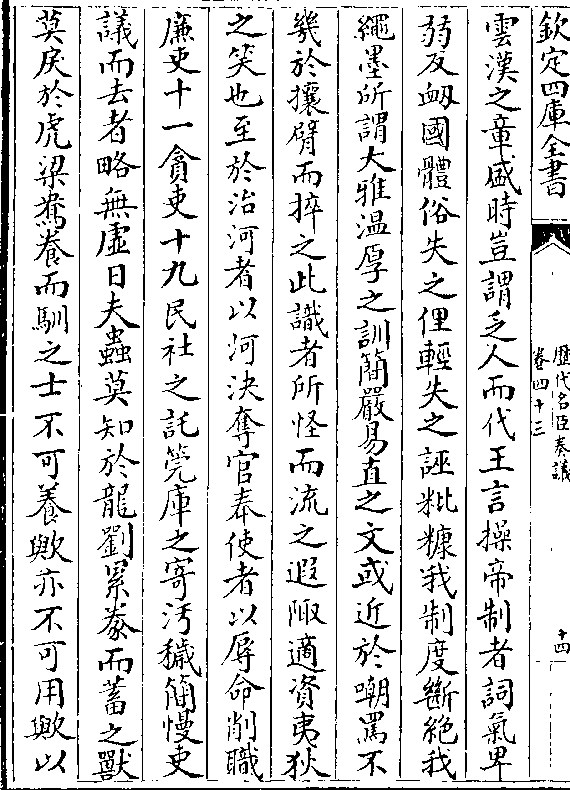 欽定四庫全書
歷代名臣奏議
卷四十三
十四
雲漢之章盛時豈謂乏人而代王言操帝制者詞氣卑
弱反衂國體俗失之俚輕失之誣粃糠我制度斷絕我
繩墨所謂大雅温厚之訓簡嚴易直之文或近於嘲罵不
幾於攘臂而捽之此識者所怪而流之遐陬適資夷狄
之笑也至於治河者以河決奪官奉使者以辱命削職
廉吏十一貪吏十九民社之託筦庫之寄汚穢簡慢吏
議而去者略無虛日夫蟲莫知於龍劉累豢而蓄之獸
莫戾於虎梁鴦養而馴之士不可養歟亦不可用歟以